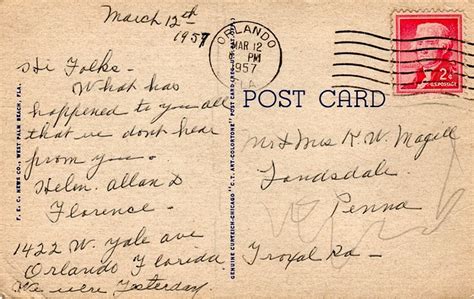 March 12th
1957
Hi Folks -
What has
happened to you all
that we don't hear
from you -
Helen. Allan &
Florence -
1422 W. Yale ave
Orlando Florida
We were Yesterday
F. E. C. NEWS CO., WEST PALM BEACH, FLA.
GENUINE CURTEICH-CHICAGO "C. T. ART-COLORTONE" POST CARD
ORLANDO
MAR 12
PM
1957
FLA.
2¢
U.S. POSTAGE
POST CARD
Mr & Mrs K. W. Magill
Landsdale
Penna
Troyal Rd -